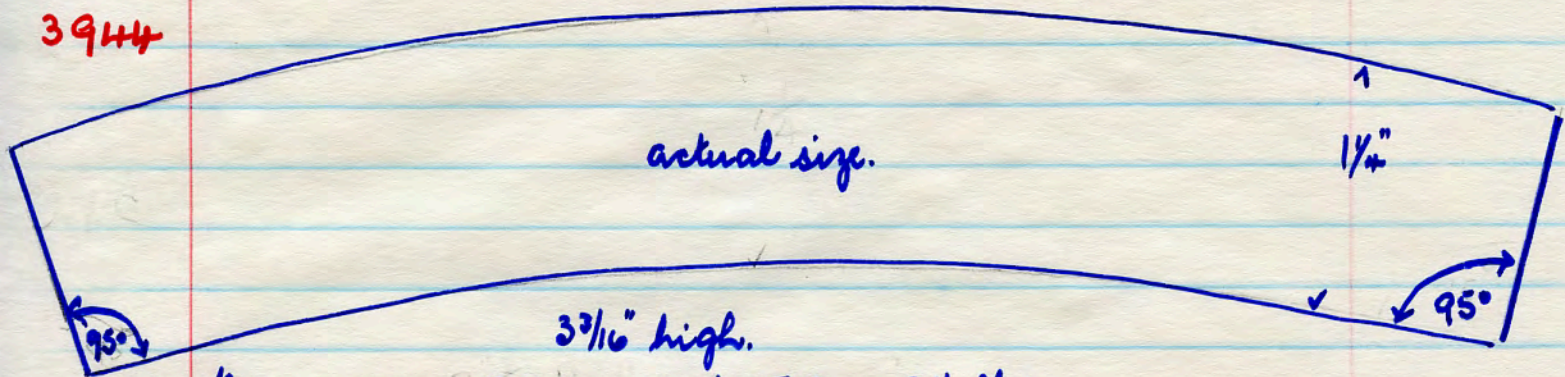 3944
actual size.
1¼"
95°
95°
3³/16" high.